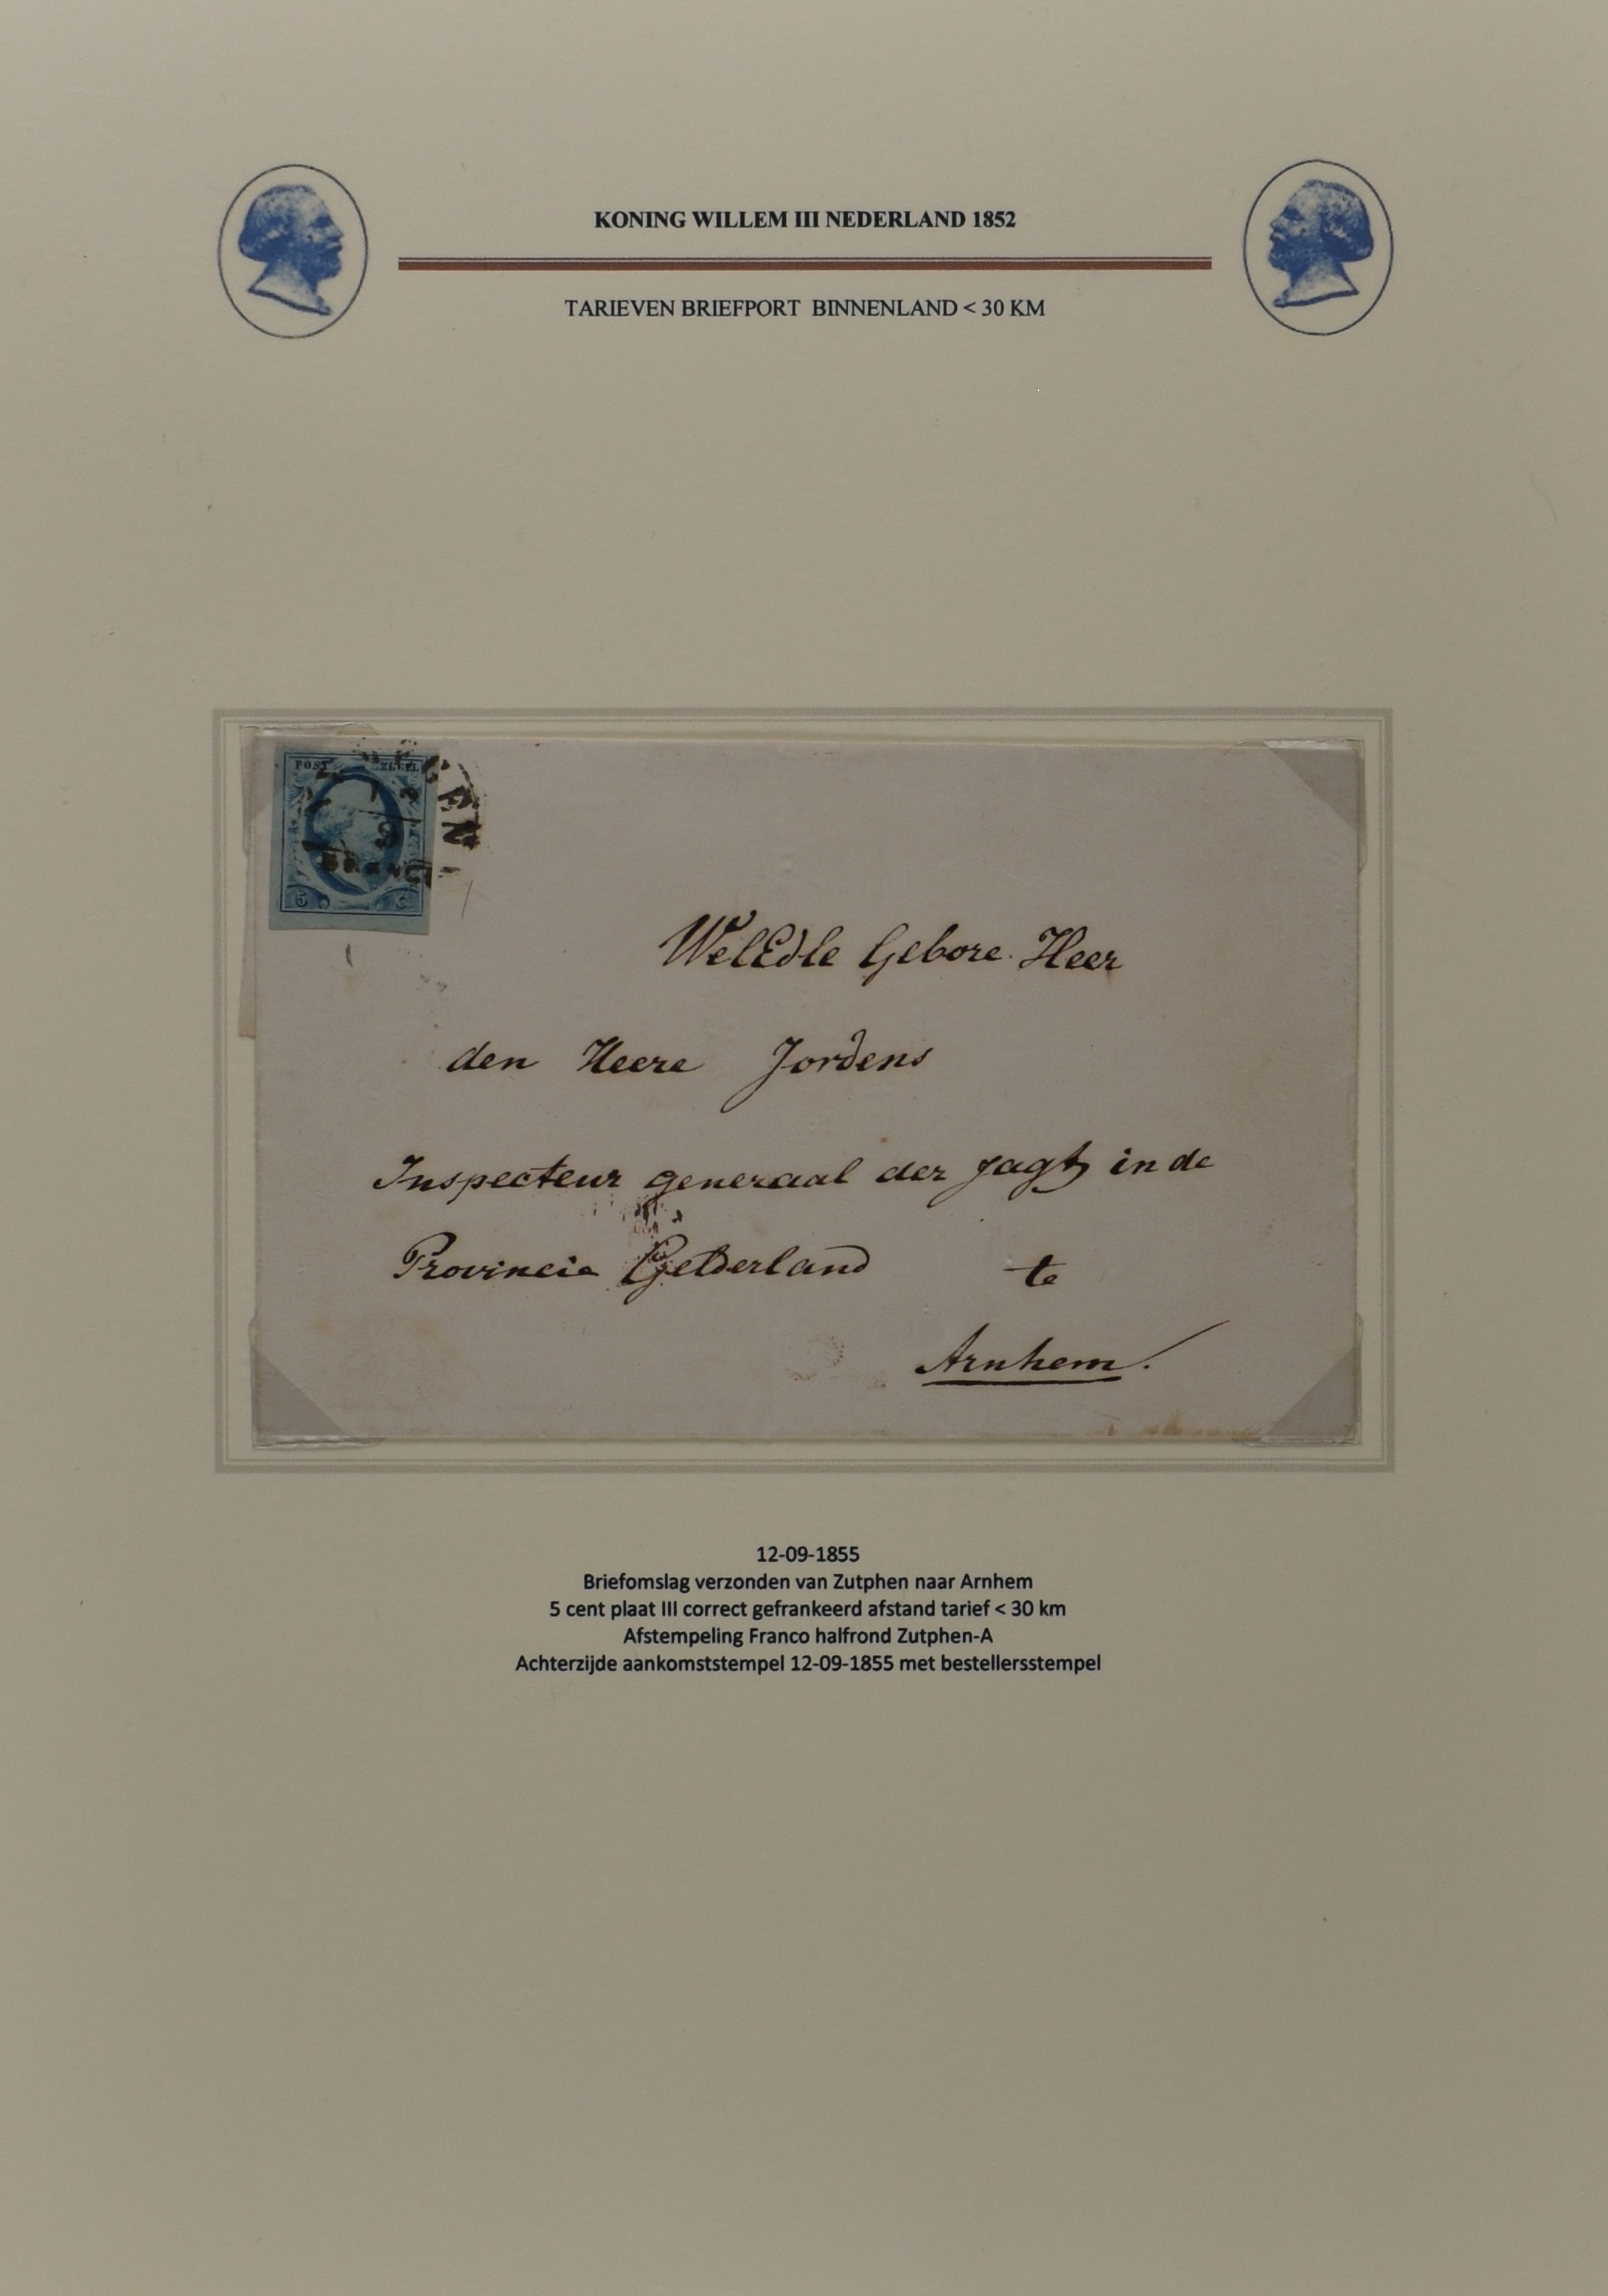 KONING WILLEM III NEDERLAND 1852
TARIEVEN BRIEFPORT BINNENLAND < 30 KM
POST ZEGEL
5 C
WelEdle Gebore Heer
den Heere Jordens
Inspecteur generaal der Jagt in de
Provincie Gelderland te
Arnhem.
12-09-1855
Briefomslag verzonden van Zutphen naar Arnhem
5 cent plaat III correct gefrankeerd afstand tarief < 30 km
Afstempeling Franco halfrond Zutphen-A
Achterzijde aankomststempel 12-09-1855 met bestellersstempel